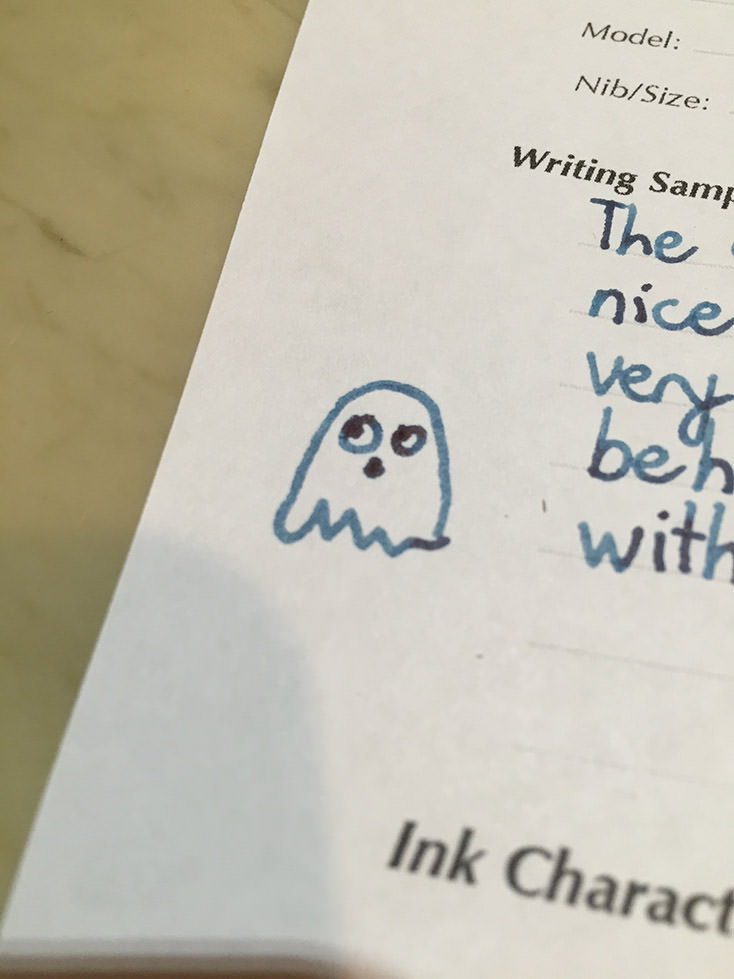 Model:
Nib/Size:
Writing Samp
The
nice
very
beh
with
Ink Charact